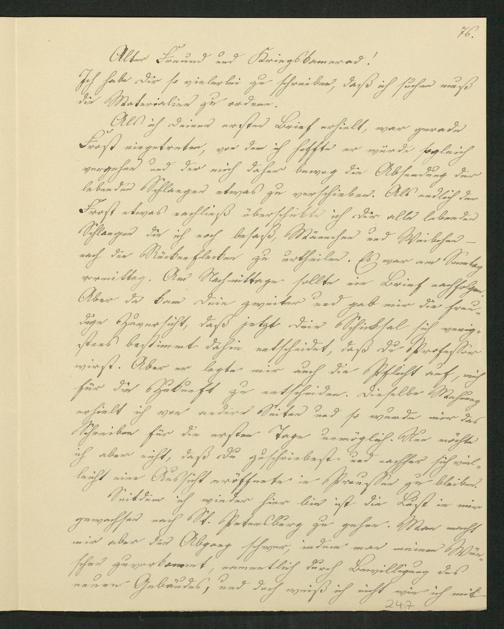 76.
Alter Freund und Kriegskamerad!
Ich habe Dir so vielerlei zu schreiben, daß ich suchen muß
die Materialien zu ordnen.
Als ich Deinen ersten Brief erhielt, war gerade
Frost eingetreten, von dem ich hoffte er würde sogleich
vergehen und der mich daher bewog die Absendung der
lebenden Schlangen etwas zu verschieben. Als endlich der
Frost etwas nachließ überschickte ich Dir alle lebenden
Schlangen die ich noch besaß, Männchen und Weibchen –
nach den Rückenflecken zu urtheilen. Es war am Sonntag
vormittag. Am Nachmittage sollte ein Brief nachfolgen.
Aber da kam Dein zweiter und gab mir die freu-
dige Zuversicht, daß jetzt Dein Schicksal sich wenig-
stens bestimmt dahin entscheidet, daß Du Professor
wirst. Aber er legte mir auch die Pflicht auf, mich
für die Zukunft zu entscheiden. Dieselbe Mahnung
erhielt ich von andern Seiten und so wurde mir das
Schreiben für die ersten Tage unmöglich. Nun möchte
ich aber nicht, daß Du zuschriebest und nachher sich viel-
leicht eine Aussicht eröffnete in Preussen zu bleiben.
Seitdem ich wieder hier bin ist die Lust in mir
gewachsen nach St. Petersburg zu gehen. Man macht
mir aber den Abgang schwer, indem man meinen Wün-
schen zuvorkommt, namentlich durch Bewilligung des
neuen Gebäudes, und doch weiß ich nicht wie ich mit
247